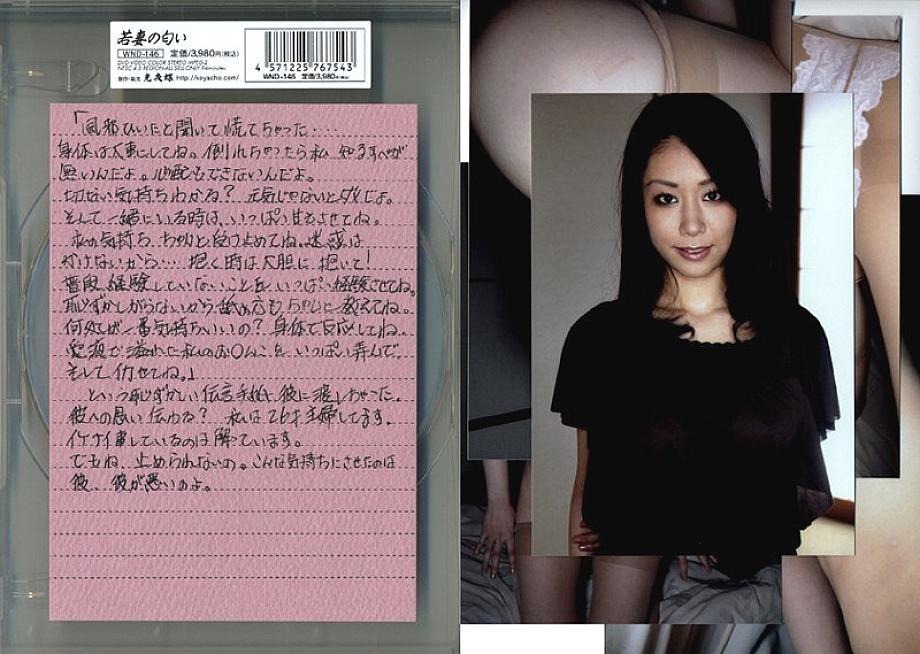 若妻の匂い
WND-146 定価/3,980円(税込)
DVD VIDEO COLOR STEREO MPEG-2
http://keyacho.com/
4 571225 767543
WND-146 定価/3,980円(税込)
「風邪ひいたと聞いて慌てちゃった…
身体は大事にしてね。倒れちゃったら私 なるすべが
無いんだよ。心配もできないんだよ。
切ない気持ちわかる? 元気じゃないとダメだよ。
そして一緒にいる時は、いっぱい甘えさせてね。
私の気持ち、ちゃんと受け止めてね。迷惑は
かけないから… 抱く時は大胆に抱いて!
普段、経験していないことを、いっぱい経験させてね。
恥ずかしがらないから舐め方も、ちゃんと教えてね。
何処が一番気持ちいいの? 身体で反応してね。
愛液で溢れた私のお〇んこを、いっぱい弄んで、
そしてイカせてね。」
という恥ずかしい伝言手紙、彼に渡しちゃった。
彼への思い伝わる? 私は26才主婦してます。
イケナイ事しているのは解っています。
でもね、止められないの。こんな気持ちにさせたのは
彼、彼が悪いのよ。